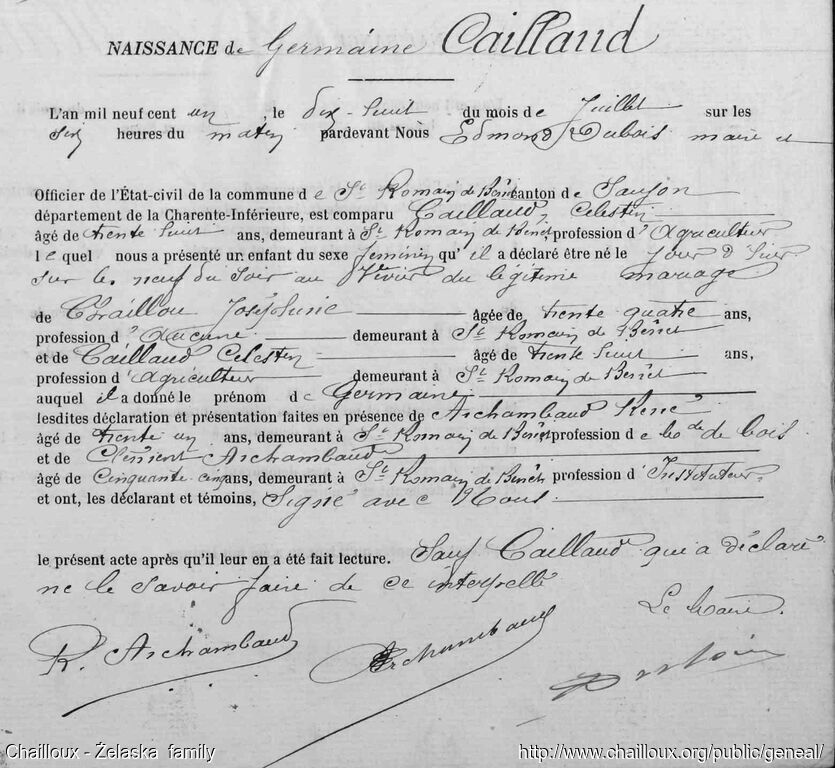 NAISSANCE de Germaine Caillaud
L'an mil neuf cent un, le dix-huit du mois de Juillet sur les
six heures du matin pardevant Nous Edmond Dubois maire et
Officier de l'État-civil de la commune de St Romain de Benet canton de Saujon
département de la Charente-Inférieure, est comparu Caillaud, Celestin
âgé de trente huit ans, demeurant à St Romain de Benet profession d'Agriculteur
lequel nous a présenté un enfant du sexe feminin qu'il a déclaré être né le jour d'hier
sur les neuf du soir au Vivier du légitime mariage
de Chaillou Joséphine âgée de trente quatre ans,
profession d'Aucune demeurant à St Romain de Benet
et de Caillaud Celestin âgé de trente huit ans,
profession d'Agriculteur demeurant à St Romain de Benet
auquel il a donné le prénom de Germaine
lesdites déclaration et présentation faites en présence de Archambaud René
âgé de trente un ans, demeurant à St Romain de Benet profession de md de bois
et de Clément Archambaud
âgé de Cinquante cinq ans, demeurant à St Romain de Benet profession d'Instituteur
et ont, les déclarant et témoins, Signé avec Nous
le présent acte après qu'il leur en a été fait lecture. Sauf Caillaud qui a déclaré
ne le savoir faire de ce interpellé
Le Maire.
R. Archambaud Archambaud
Chailloux - Żelaska family http://www.chailloux.org/public/geneal/